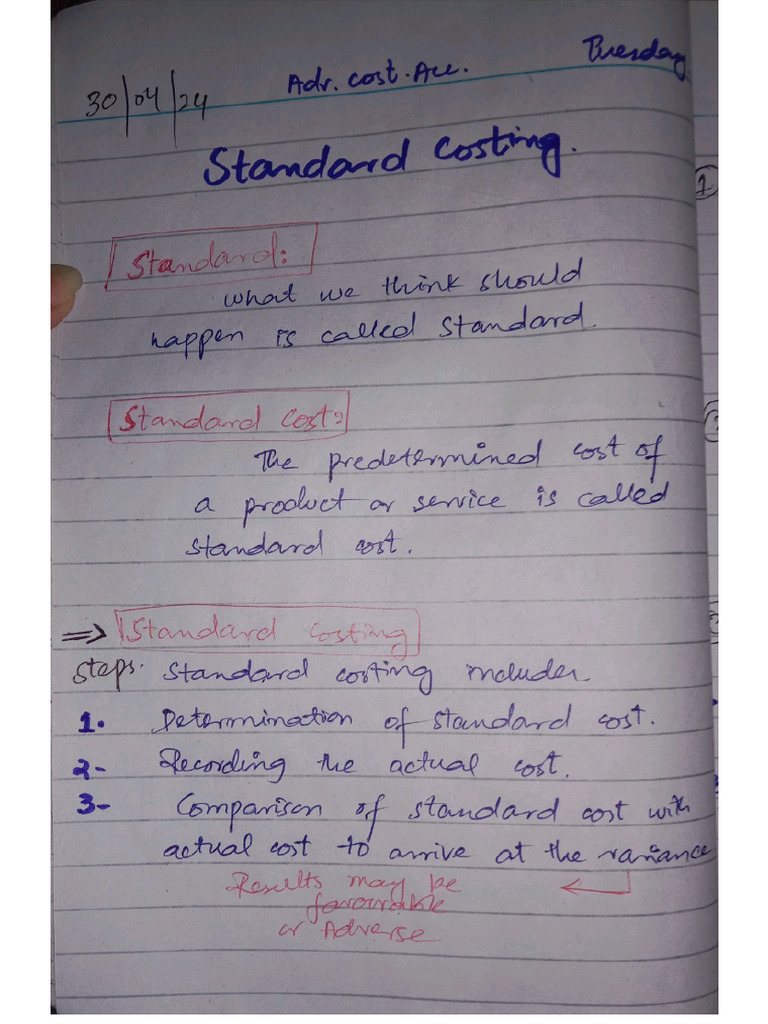 30/04/24 Adv. Cost. Acc. Tuesday
Standard Costing.
Standard:
What we think should
happen is called Standard.
Standard Cost:
The predetermined cost of
a product or service is called
standard cost.
⇒ Standard Costing
Steps. Standard costing includes.
1. Determination of standard cost.
2- Recording the actual cost.
3- Comparison of standard cost with
actual cost to arrive at the variance
Results may be
favourable
or Adverse.